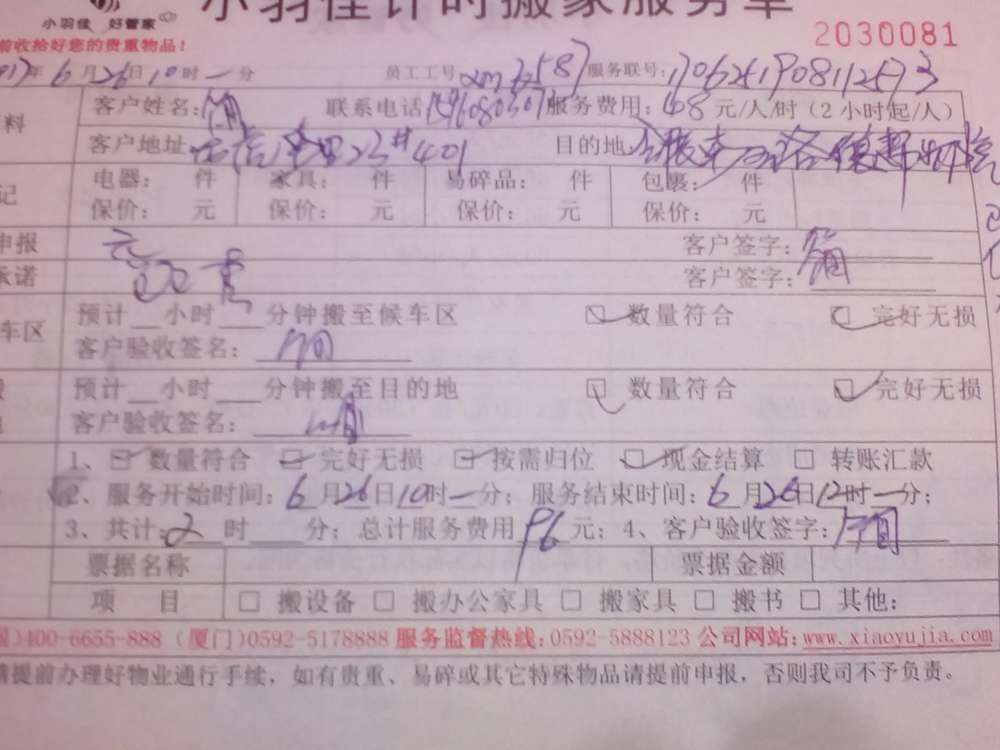 小羽佳计时搬家服务单
小羽佳 好管家
前收拾好您的贵重物品！
2030081
年6月26日10时一分 员工工号 服务联号：
料 客户姓名： 联系电话 服务费用：48元/人/时（2小时起/人）
客户地址 23#401 目的地
记 电器： 件 家具： 件 易碎品： 件 包裹： 件
保价： 元 保价： 元 保价： 元 保价： 元
申报 客户签字：
承诺 客户签字：
车区 预计__小时___分钟搬至候车区 ☑ 数量符合 ☑ 完好无损
客户验收签名：
预计__小时___分钟搬至目的地 ☑ 数量符合 ☑ 完好无损
客户验收签名：
1、☑ 数量符合 ☑ 完好无损 ☑ 按需归位 ☑ 现金结算 □ 转账汇款
2、服务开始时间：6月26日10时一分；服务结束时间：6月26日12时一分；
3、共计：2时 分；总计服务费用96元；4、客户验收签字：
票据名称 票据金额
项 目 □ 搬设备 □ 搬办公家具 □ 搬家具 □ 搬书 □ 其他：
)400-6655-888 (厦门)0592-5178888 服务监督热线：0592-5888123 公司网站：www.xiaoyujia.com
请提前办理好物业通行手续，如有贵重、易碎或其它特殊物品请提前申报，否则我司不予负责。